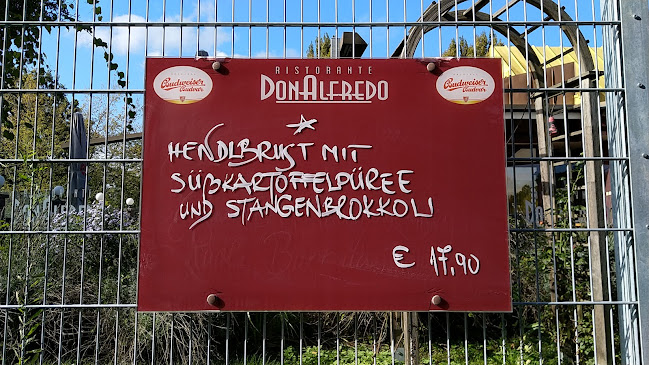 RISTORANTE
DONALFREDO
Budweiser
Budvar
Budweiser
Budvar
HENDLBRUST MIT
SÜßKARTOFFELPÜREE
UND STANGENBROKKOLI
€ 17,90